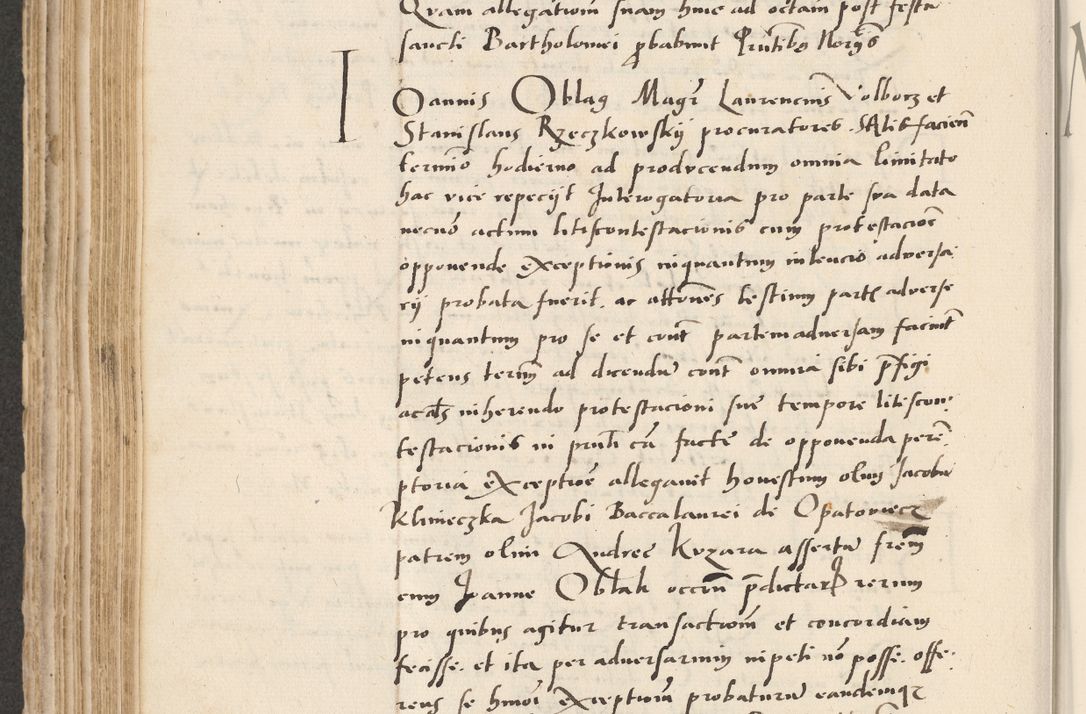 Quam allegationem suam huic ad octam post festa
sancti Bartholomei probabunt Prntibus Norys
Ioannis Oblag Magr Laurencius Volborz et
Stanislaus Rzeczkowskij procuratores. satisfacien
termino hodierno ad producendum omnia limitato
hac vice repecijt Interogatoria pro parte sua data
necno actum litiscontestacionis cum protestacioe
opponende Exceptionis inquantum intencio adversa
rij probata fuerit. ac attones testium parts adverse
inquantum pro se et cont partem adversam faciunt
petens termi ad dicendum cont omnia sibi prfigi
inherendo protestacioni sue tempore litiscon:
testacionis in prnti ca facte de opponenda perē
ptoria Exceptioe allegavit honestum olim Jacobu
Klimeczka Jacobi Baccalaurei de Opatowiecz
patrem olim Andree Kuzara assertu frem
cum Joanne Oblak occne pdictar rerum
pro quibus agitur transactiom et concordiam
fecisse. et ita per adversarium inpeti no posse. offe:
rens se hmoi Exceptiom probaturum eandemqz